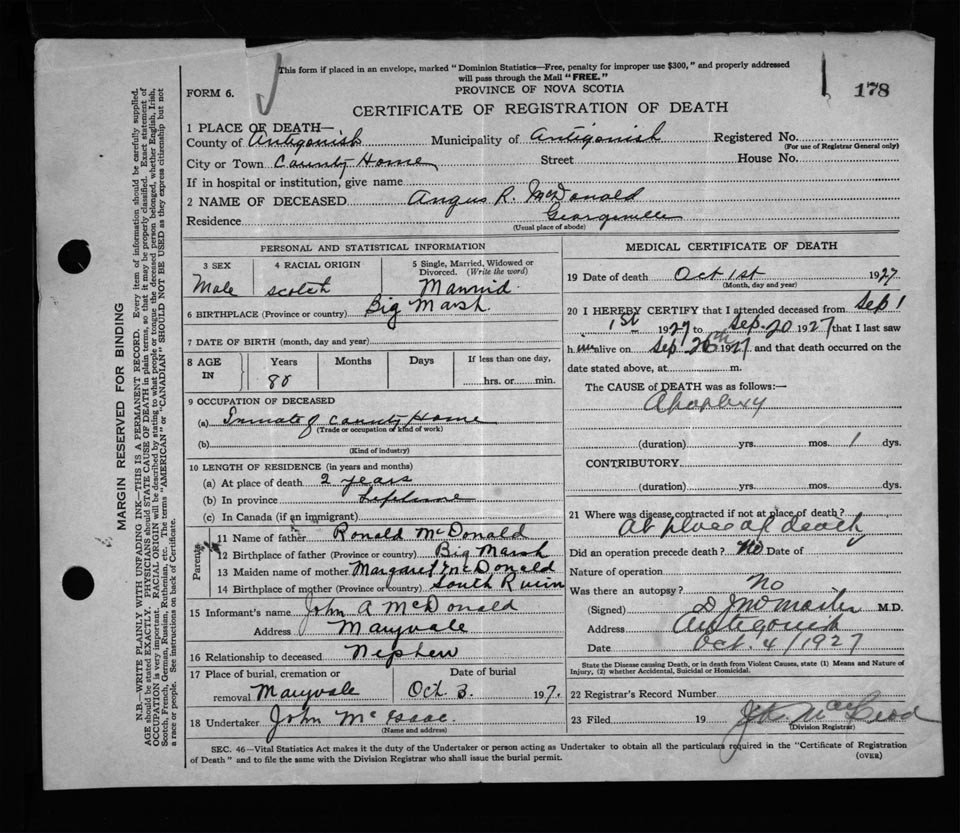 This form if placed in an envelope, marked "Dominion Statistics—Free, penalty for improper use $300," and properly addressed
will pass through the Mail "FREE."
178
FORM 6.
PROVINCE OF NOVA SCOTIA
CERTIFICATE OF REGISTRATION OF DEATH
1 PLACE OF DEATH—
County of Antigonish Municipality of Antigonish Registered No.
(For use of Registrar General only)
City or Town County Home Street House No.
If in hospital or institution, give name
2 NAME OF DECEASED Angus R. McDonald
Residence Georgeville
(Usual place of abode)
PERSONAL AND STATISTICAL INFORMATION
3 SEX 4 RACIAL ORIGIN 5 Single, Married, Widowed or
Divorced. (Write the word)
Male Scotch Married
6 BIRTHPLACE (Province or country) Big Marsh
7 DATE OF BIRTH (month, day and year)
8 AGE IN Years Months Days If less than one day,
80 hrs. or min.
9 OCCUPATION OF DECEASED
(a) Inmate of County Home
(Trade or occupation or kind of work)
(b)
(Kind of industry)
10 LENGTH OF RESIDENCE (in years and months)
(a) At place of death 2 years
(b) In province Lifetime
(c) In Canada (if an immigrant)
Parents
11 Name of father Ronald McDonald
12 Birthplace of father (Province or country) Big Marsh
13 Maiden name of mother Margaret McDonald
14 Birthplace of mother (Province or country) South River
15 Informant's name John A McDonald
Address Maryvale
16 Relationship to deceased Nephew
17 Place of burial, cremation or Date of burial
removal Maryvale Oct 3. 197.
18 Undertaker John McIsaac.
(Name and address)
MEDICAL CERTIFICATE OF DEATH
19 Date of death Oct 1st 1927
(Month, day and year)
20 I HEREBY CERTIFY that I attended deceased from Sep 1
1st 1927 to Sep. 20 1927 that I last saw
him alive on Sep 1927 and that death occurred on the
date stated above, at m.
The CAUSE of DEATH was as follows:—
Apoplexy
(duration) yrs. mos. 1 dys.
CONTRIBUTORY
(duration) yrs. mos. dys.
21 Where was disease contracted if not at place of death?
At place of death
Did an operation precede death? No Date of
Nature of operation
Was there an autopsy? No
(Signed) M.D.
Address Antigonish
Date Oct. 4/1927
State the Disease causing Death, or in death from Violent Causes, state (1) Means and Nature of
Injury, (2) whether Accidental, Suicidal or Homicidal.
22 Registrar's Record Number
23 Filed 19 MacLeod
(Division Registrar)
SEC. 46—Vital Statistics Act makes it the duty of the Undertaker or person acting as Undertaker to obtain all the particulars required in the "Certificate of Registration
of Death" and to file the same with the Division Registrar who shall issue the burial permit.
(OVER)
MARGIN RESERVED FOR BINDING
N.B.—WRITE PLAINLY WITH UNFADING INK—THIS IS A PERMANENT RECORD. Every item of information should be carefully supplied.
AGE should be stated EXACTLY. PHYSICIANS should STATE CAUSE OF DEATH in plain terms, so that it may be properly classified. Exact statement of
OCCUPATION is very important. RACIAL ORIGIN will be described by stating to what people or tongue the deceased person belonged, whether English, Irish,
Scotch, French, German, Russian, Ruthenian, etc. The terms "AMERICAN" or "CANADIAN" SHOULD NOT BE USED as they express citizenship but not
a race or people. See instructions on back of Certificate.